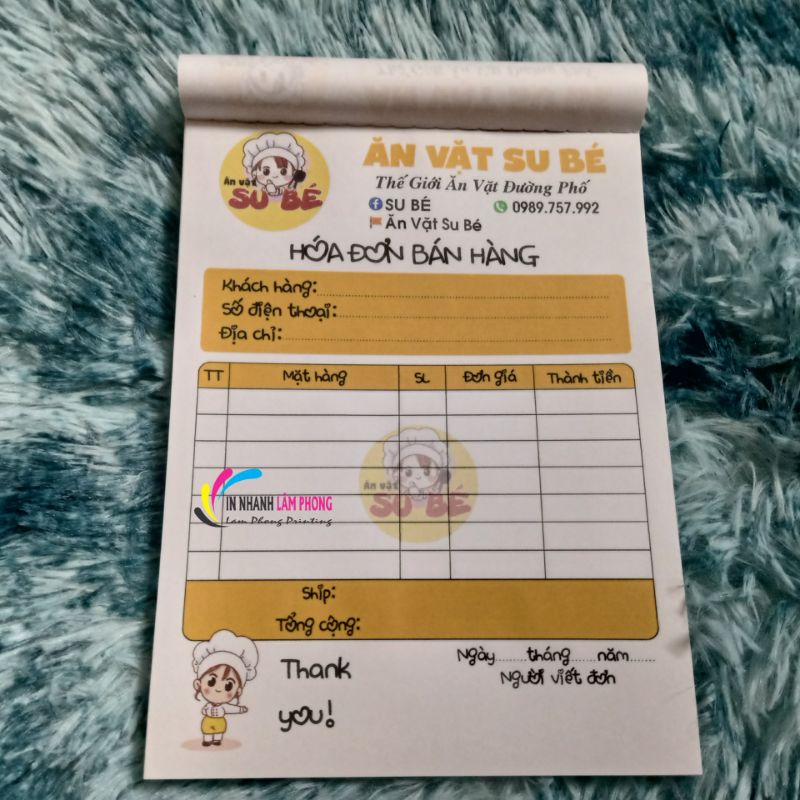 Ăn vặt
SU BÉ
ĂN VẶT SU BÉ
Thế Giới Ăn Vặt Đường Phố
SU BÉ 0989.757.992
Ăn Vặt Su Bé
HÓA ĐƠN BÁN HÀNG
Khách hàng:
Số điện thoại:
Địa chỉ:
TT Mặt hàng SL Đơn giá Thành tiền
Ăn vặt
SU BÉ
IN NHANH LÂM PHONG
Lam Phong Printing
Ship:
Tổng cộng:
Thank
you!
Ngày........tháng......năm.......
Người viết đơn